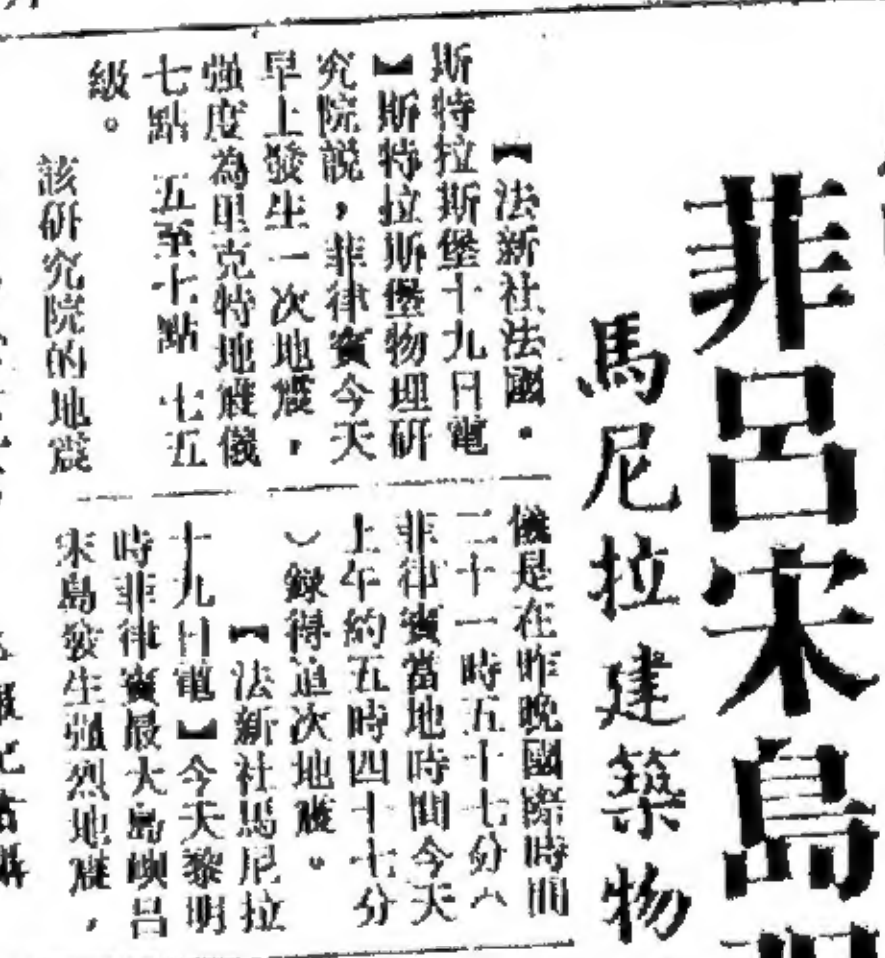 菲呂宋島
馬尼拉建築物
【法新社法國·
斯特拉斯堡十九日電
】斯特拉斯堡物理研
究院說，菲律賓今天
早上發生一次地震，
強度為里克特地震儀
七點 五至七點 七五
級。
該研究院的地震
儀是在昨晚國際時間
二十一時五十七分（
菲律賓當地時間今天
上午約五時四十七分
）錄得這次地震。
【法新社馬尼拉
十九日電】今天黎明
時菲律賓最大島嶼呂
宋島發生强烈地震，